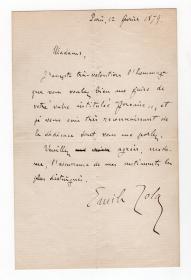 Paris, 12 février 1879.
Madame,
J'accepte très volontiers l'hommage
que vous voulez bien me faire de
votre valse intitulée
je vous suis très reconnaissant de
la dédicace dont vous me parlez.
Veuillez agréer, mada-
me, l'assurance de mes sentiments les
plus distingués.
Emile Zola